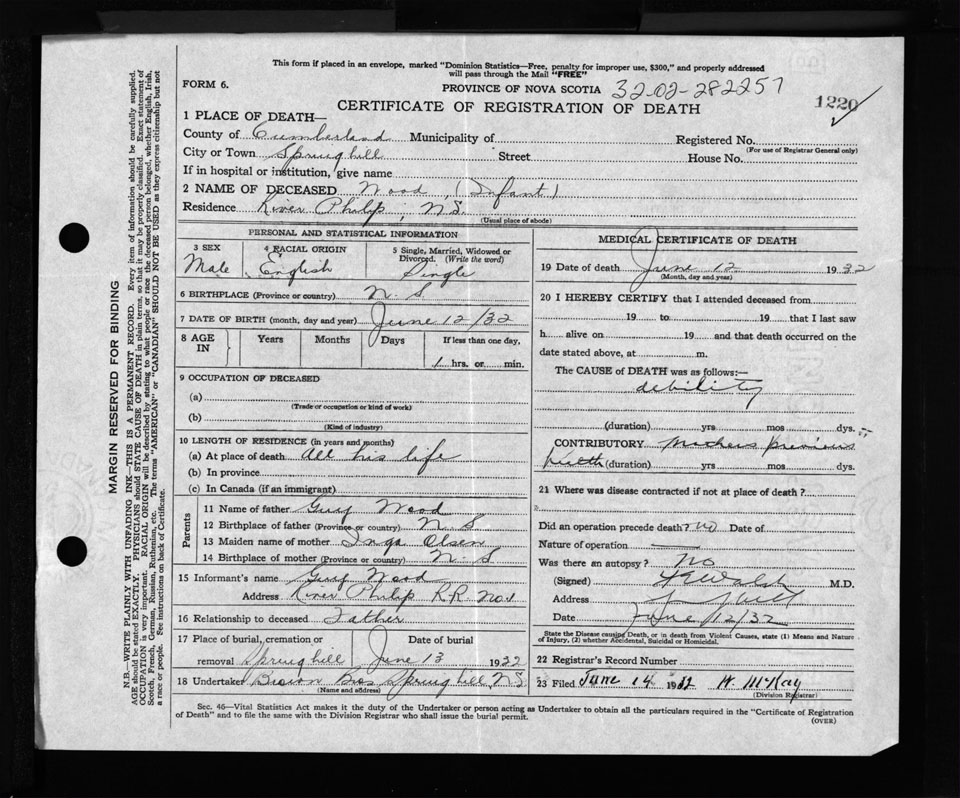 This form if placed in an envelope, marked "Dominion Statistics—Free, penalty for improper use, $300," and properly addressed
will pass through the Mail "FREE"
FORM 6.
PROVINCE OF NOVA SCOTIA 32-02-282257
1220
CERTIFICATE OF REGISTRATION OF DEATH
1 PLACE OF DEATH—
County of Cumberland Municipality of Registered No.
(For use of Registrar General only)
City or Town Springhill Street House No.
If in hospital or institution, give name
2 NAME OF DECEASED Wood, (Infant)
Residence River Philip, N.S.
(Usual place of abode)
PERSONAL AND STATISTICAL INFORMATION
3 SEX 4 RACIAL ORIGIN 5 Single, Married, Widowed or
Divorced. (Write the word)
Male English Single
6 BIRTHPLACE (Province or country) N. S.
7 DATE OF BIRTH (month, day and year) June 12/32
8 AGE IN Years Months Days If less than one day,
1 hrs. or min.
9 OCCUPATION OF DECEASED
(a)
(Trade or occupation or kind of work)
(b)
(Kind of industry)
10 LENGTH OF RESIDENCE (in years and months)
(a) At place of death all his life
(b) In province
(c) In Canada (if an immigrant)
Parents
11 Name of father Guy Wood
12 Birthplace of father (Province or country) N S
13 Maiden name of mother Inga Olsen
14 Birthplace of mother (Province or country) N. S
15 Informant's name Guy Wood
Address River Philip R.R. No 1
16 Relationship to deceased Father
17 Place of burial, cremation or Date of burial
removal Springhill June 13 1932
18 Undertaker Brown Bros Springhill N.S.
(Name and address)
MEDICAL CERTIFICATE OF DEATH
19 Date of death June 12 1932
(Month, day and year)
20 I HEREBY CERTIFY that I attended deceased from
19 to 19 that I last saw
h alive on 19 and that death occurred on the
date stated above, at m.
The CAUSE of DEATH was as follows:—
debility
(duration) yrs mos dys.
CONTRIBUTORY Mothers previous
health (duration) yrs mos dys.
21 Where was disease contracted if not at place of death?
Did an operation precede death? no Date of
Nature of operation
Was there an autopsy? No
(Signed) Walsh M.D.
Address
Date June 12/32
State the Disease causing Death, or in death from Violent Causes, state (1) Means and Nature
of Injury, (2) whether Accidental, Suicidal or Homicidal.
22 Registrar's Record Number
23 Filed June 14 1932 H. McKay
(Division Registrar)
Sec. 46—Vital Statistics Act makes it the duty of the Undertaker or person acting as Undertaker to obtain all the particulars required in the "Certificate of Registration
of Death" and to file the same with the Division Registrar who shall issue the burial permit.
(OVER)
MARGIN RESERVED FOR BINDING
N.B.—WRITE PLAINLY WITH UNFADING INK—THIS IS A PERMANENT RECORD. Every item of information should be carefully supplied.
AGE should be stated EXACTLY. PHYSICIANS should STATE CAUSE OF DEATH in plain terms, so that it may be properly classified. Exact statement of
OCCUPATION is very important. RACIAL ORIGIN will be described by stating to what people or race the deceased person belonged, whether English, Irish,
Scotch, French, German, Russian, Ruthenian, etc. The terms "AMERICAN" or "CANADIAN" SHOULD NOT BE USED as they express citizenship but not
a race or people. See instructions on back of Certificate.